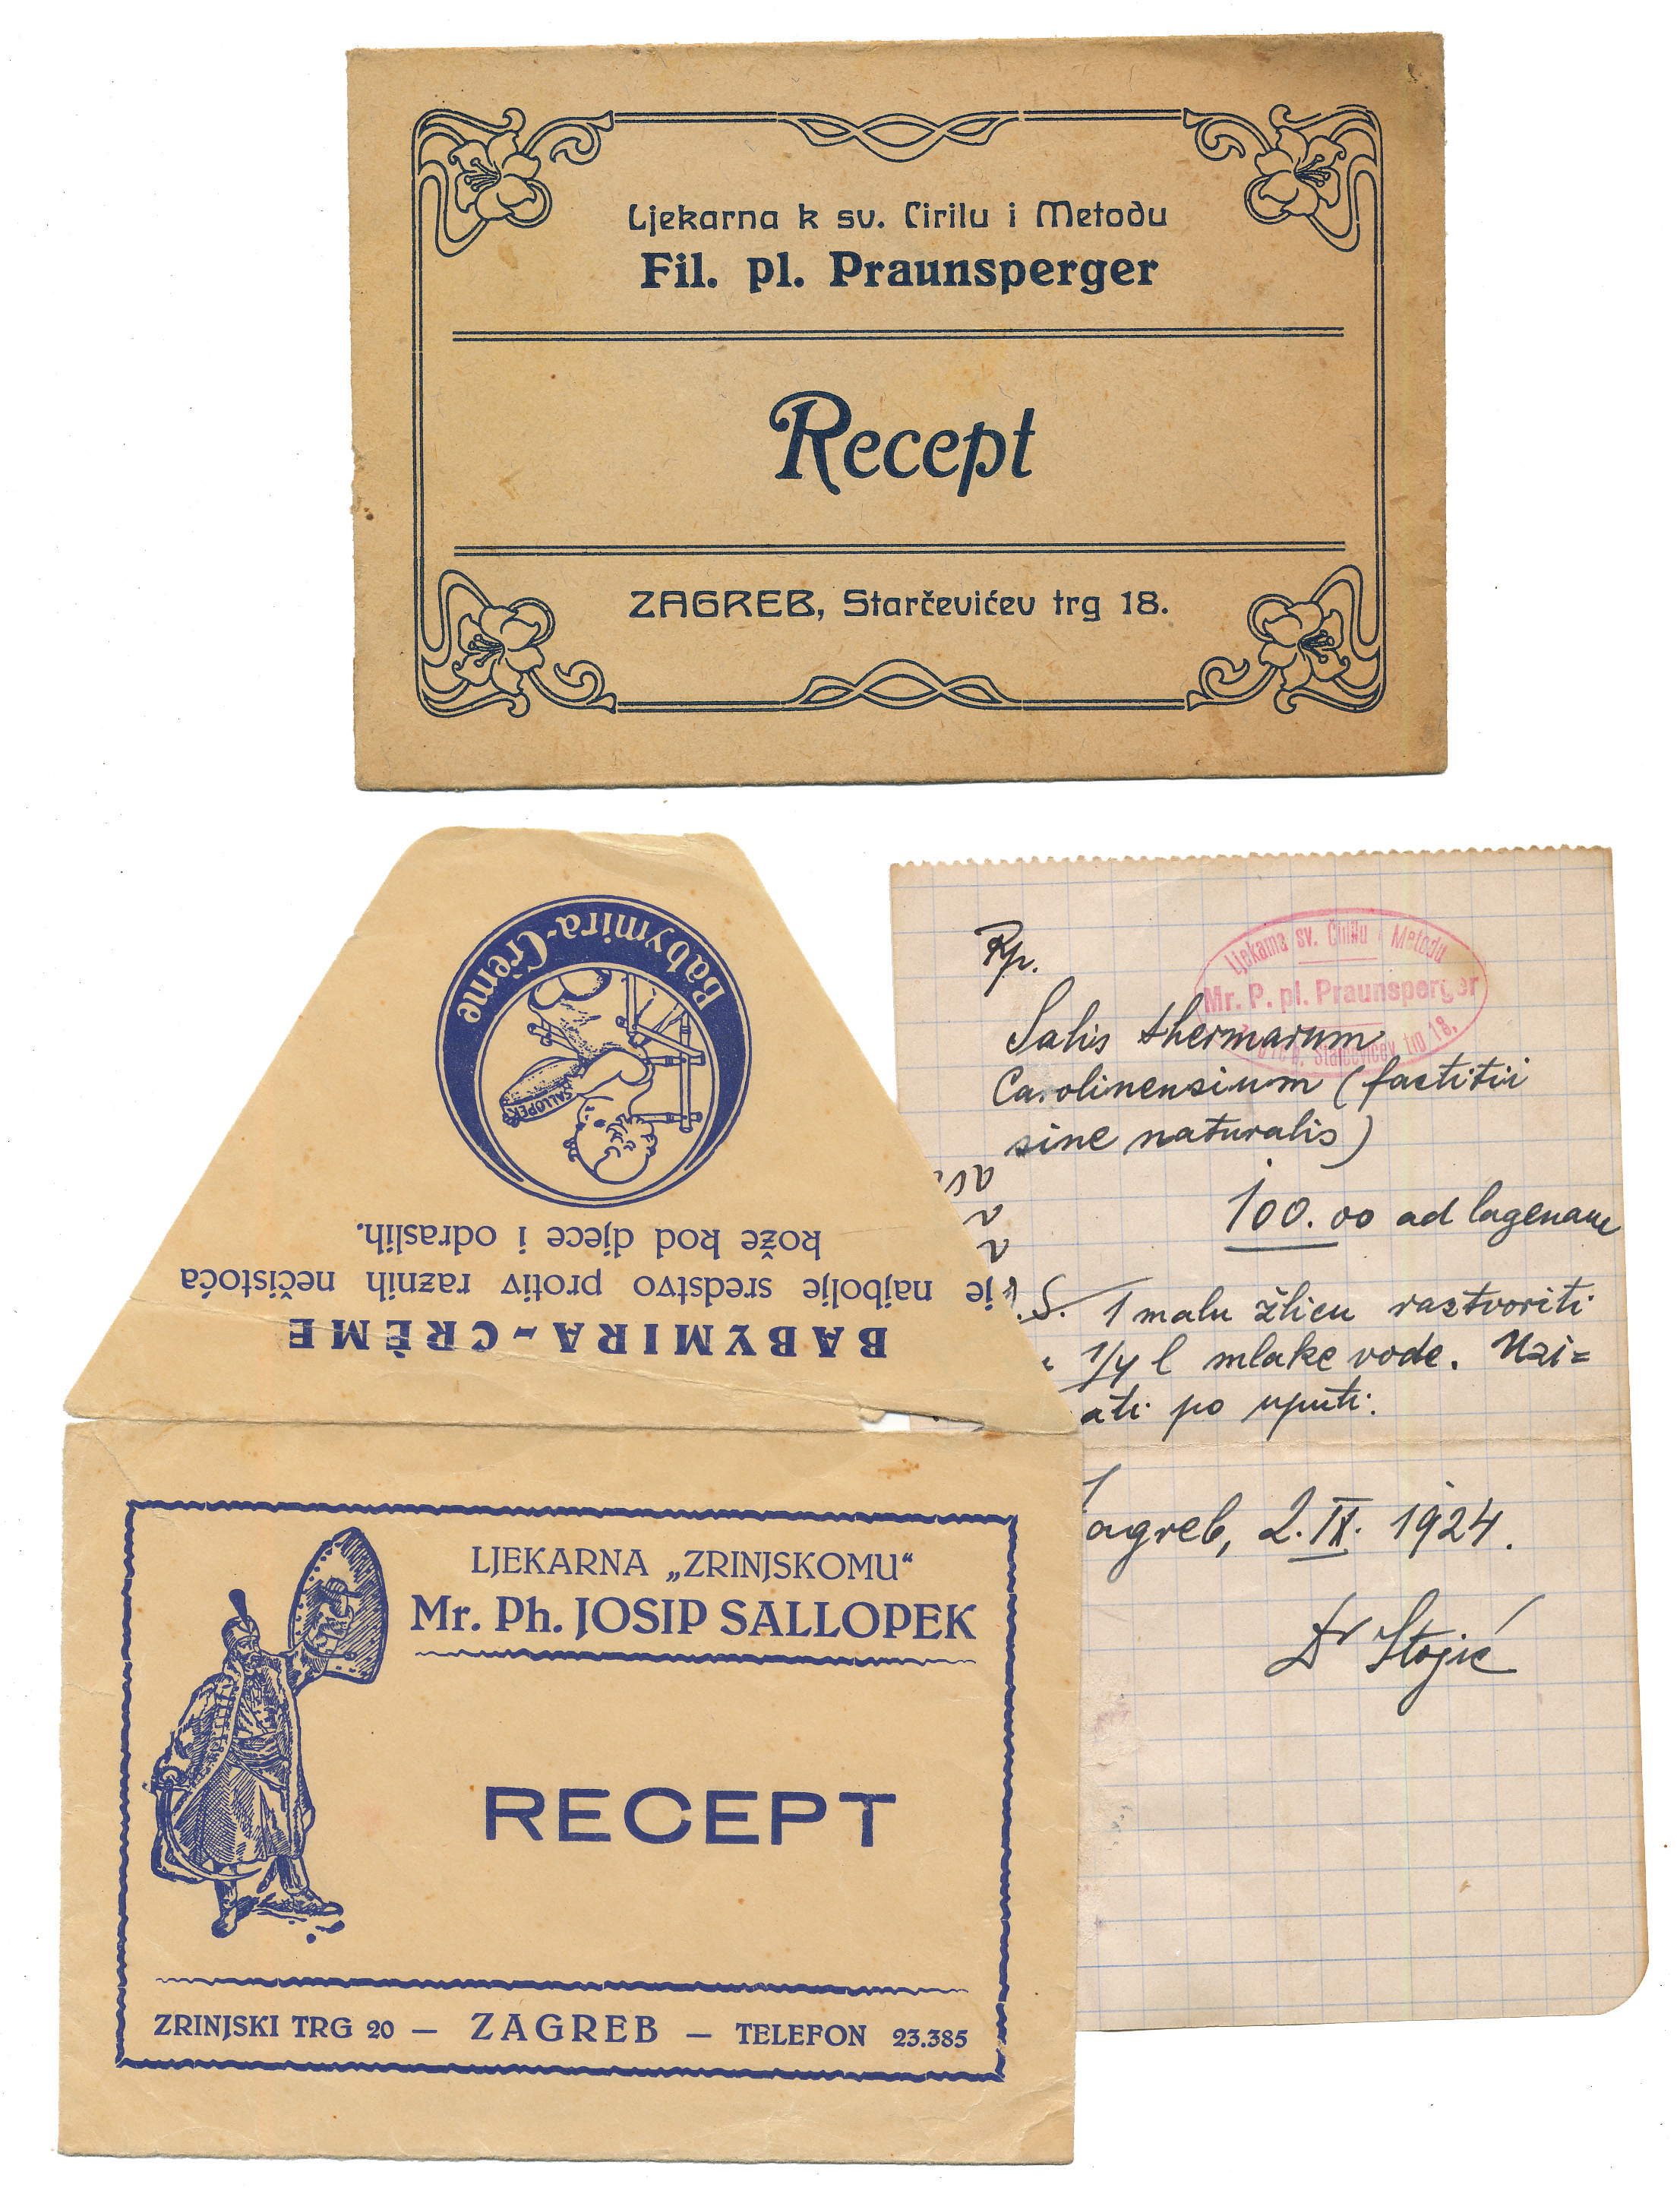 Ljekarna k sv. Cirilu i Metodu
Fil. pl. Praunsperger
Recept
ZAGREB, Starčevićev trg 18.
Babymira-Crème
SALLOPEK
BABYMIRA-CRÈME
je najbolje sredstvo protiv raznih nečistoća
kože kod djece i odraslih.
LJEKARNA „ZRINJSKOMU“
Mr. Ph. JOSIP SALLOPEK
RECEPT
ZRINJSKI TRG 20 — ZAGREB — TELEFON 23.385
Ljekarna sv. Cirilu i Metodu
Mr. P. pl. Praunsperger
Starčevićev trg 18.
Rp.
Salis thermarum
Carolinensium (factitii
sine naturalis)
100.00 ad lagenam
S. 1 malu žlicu rastvoriti
1/4 l mlake vode. Uzi=
ati po uputi.
agreb, 2. IX. 1924.
Dr Stojić